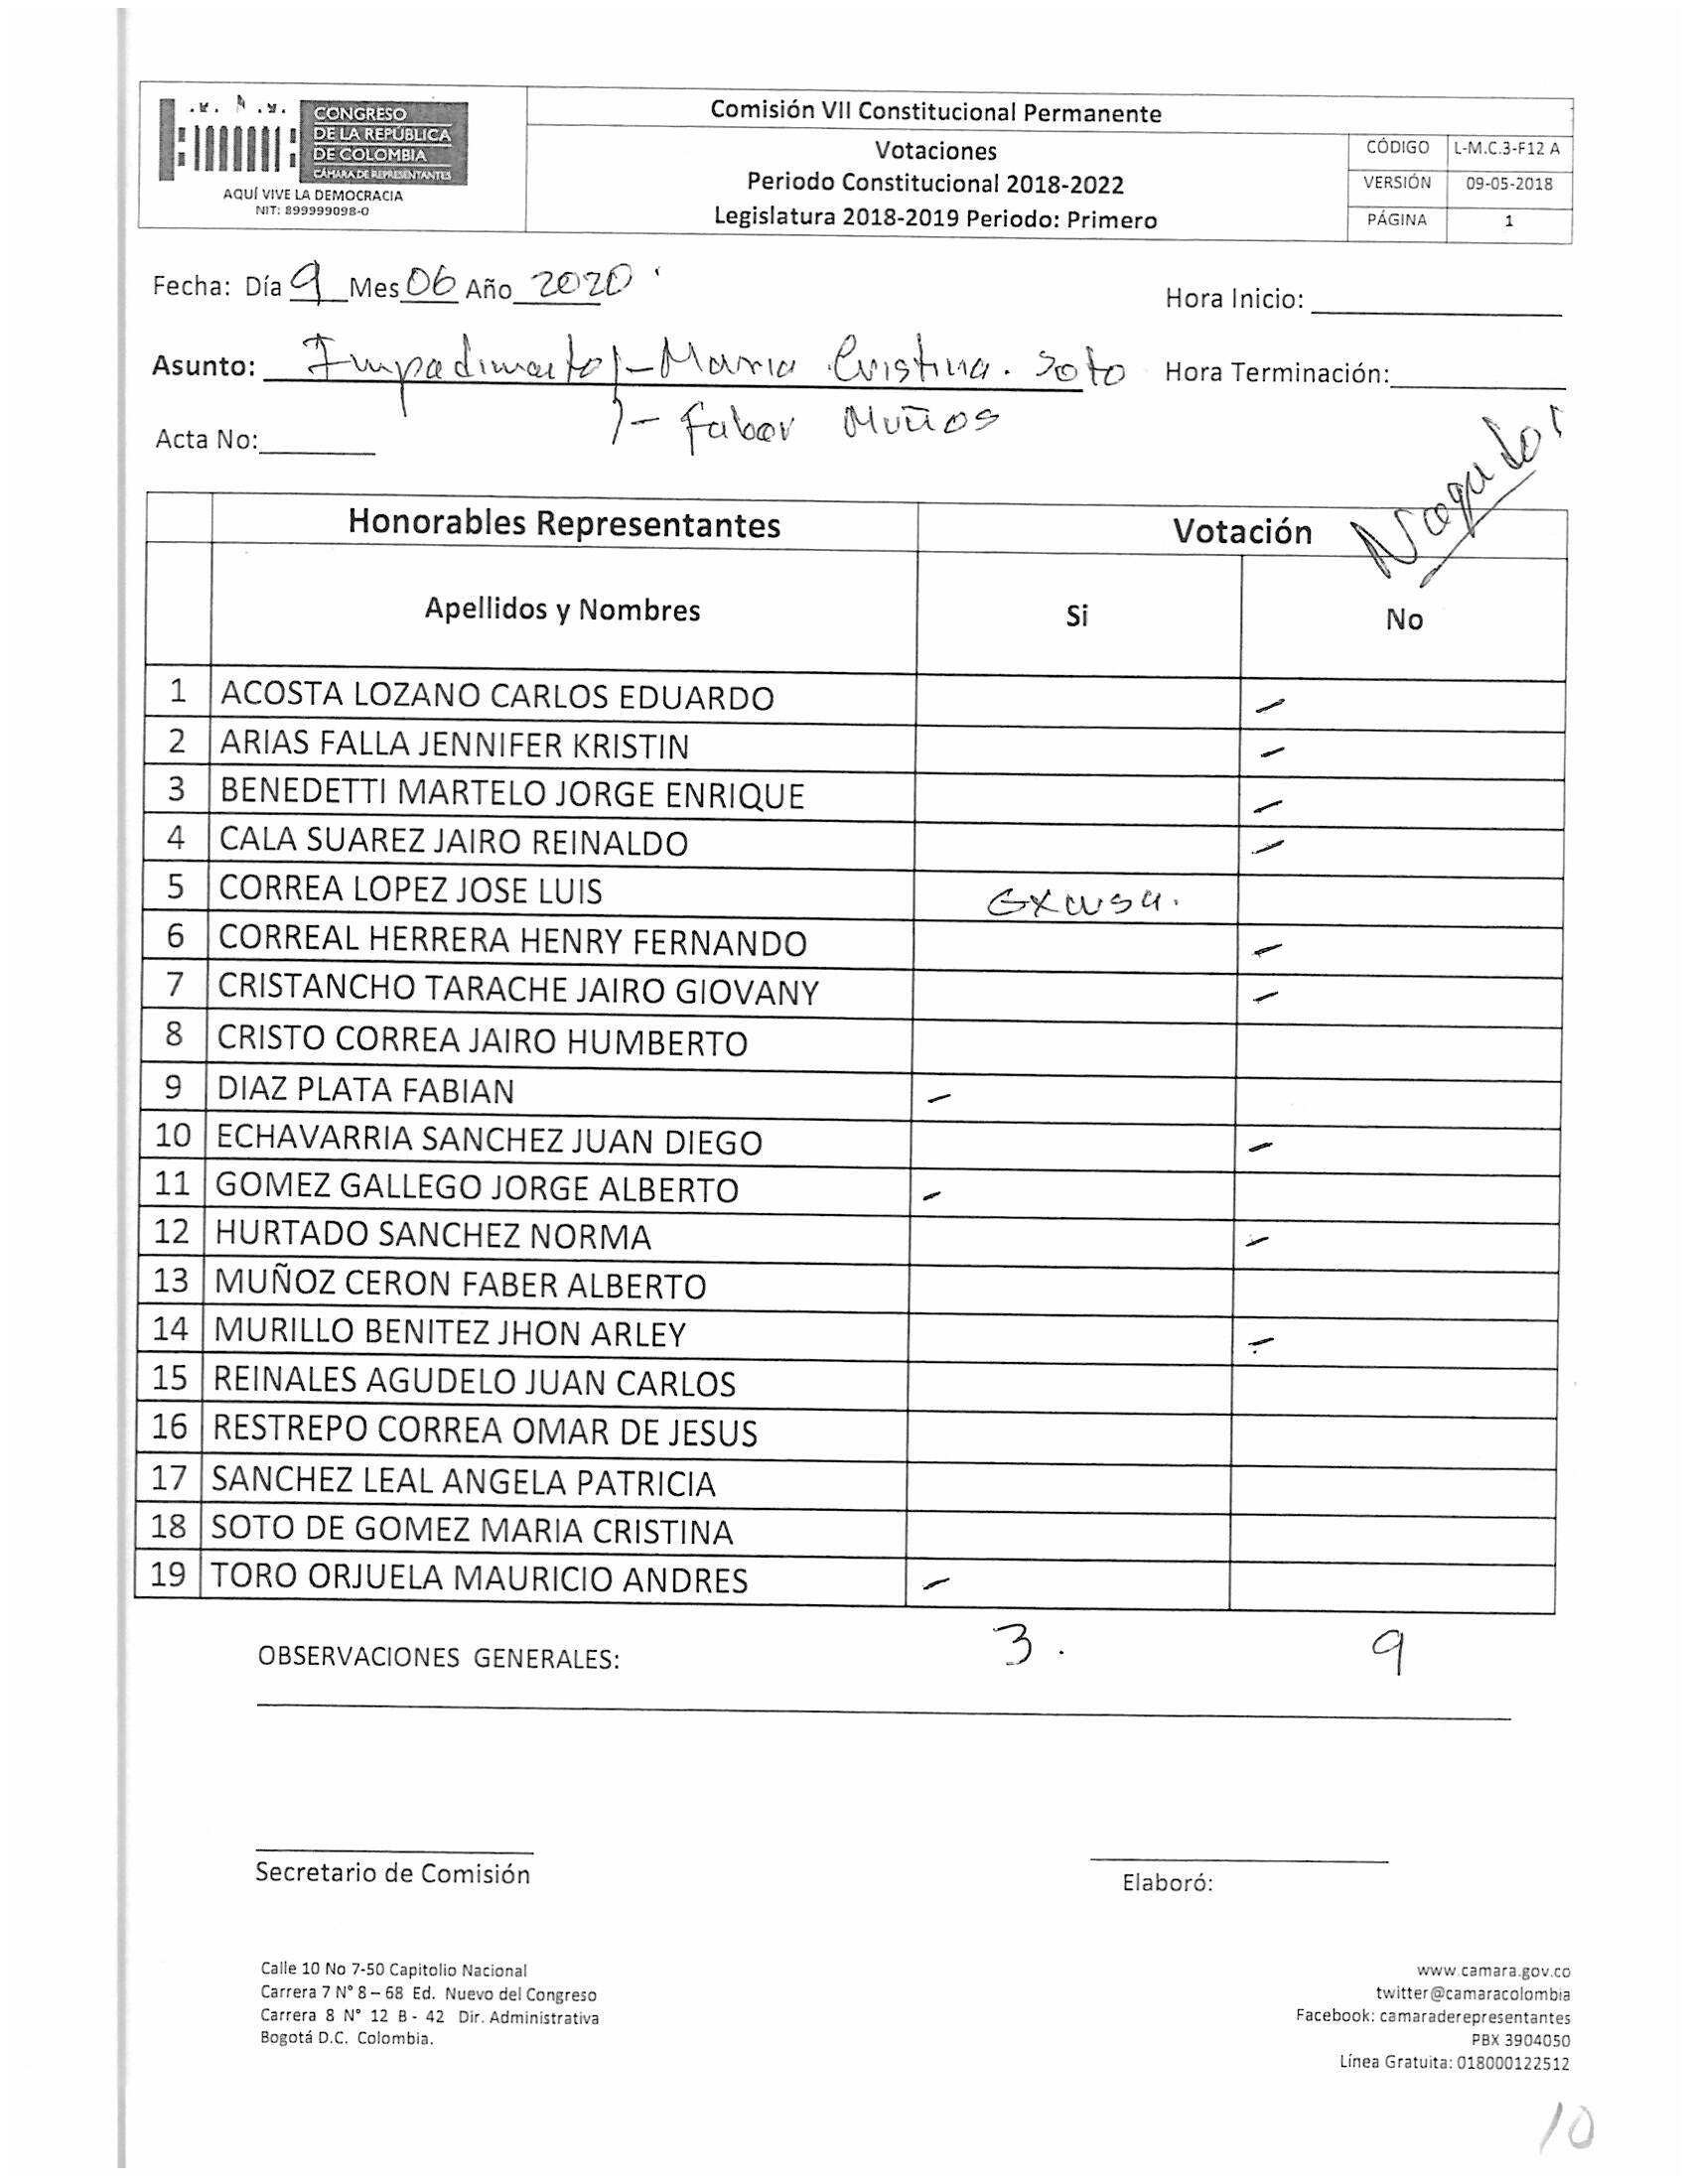 CONGRESO
DE LA REPÚBLICA
DE COLOMBIA
CÁMARA DE REPRESENTANTES
AQUÍ VIVE LA DEMOCRACIA
NIT: 899999098-0
Comisión VII Constitucional Permanente
Votaciones
Periodo Constitucional 2018-2022
Legislatura 2018-2019 Periodo: Primero
CÓDIGO L-M.C.3-F12 A
VERSIÓN 09-05-2018
PÁGINA 1
Fecha: Día 9 Mes 06 Año 2020
Hora Inicio:
Asunto: Impedimento - Maria Cristina. Soto
Hora Terminación:
- Faber Muños
Acta No:
Negado!
Honorables Representantes Votación
Apellidos y Nombres Si No
1 ACOSTA LOZANO CARLOS EDUARDO –
2 ARIAS FALLA JENNIFER KRISTIN –
3 BENEDETTI MARTELO JORGE ENRIQUE –
4 CALA SUAREZ JAIRO REINALDO –
5 CORREA LOPEZ JOSE LUIS Excusa.
6 CORREAL HERRERA HENRY FERNANDO –
7 CRISTANCHO TARACHE JAIRO GIOVANY –
8 CRISTO CORREA JAIRO HUMBERTO
9 DIAZ PLATA FABIAN –
10 ECHAVARRIA SANCHEZ JUAN DIEGO –
11 GOMEZ GALLEGO JORGE ALBERTO –
12 HURTADO SANCHEZ NORMA –
13 MUÑOZ CERON FABER ALBERTO
14 MURILLO BENITEZ JHON ARLEY –
15 REINALES AGUDELO JUAN CARLOS
16 RESTREPO CORREA OMAR DE JESUS
17 SANCHEZ LEAL ANGELA PATRICIA
18 SOTO DE GOMEZ MARIA CRISTINA
19 TORO ORJUELA MAURICIO ANDRES –
OBSERVACIONES GENERALES: 3. 9
Secretario de Comisión
Elaboró:
Calle 10 No 7-50 Capitolio Nacional
Carrera 7 N° 8 – 68 Ed. Nuevo del Congreso
Carrera 8 N° 12 B - 42 Dir. Administrativa
Bogotá D.C. Colombia.
www.camara.gov.co
twitter@camaracolombia
Facebook: camaraderepresentantes
PBX 3904050
Línea Gratuita: 018000122512
10